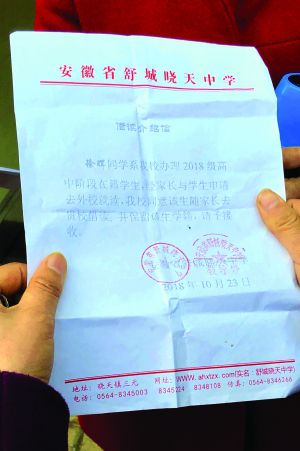 安徽省舒城晓天中学
借读介绍信
同学系我校办理2018级高
中阶段在籍学生,经家长与学生申请
去外校就读,我校同意该生随家长去
贵校借读,并保留该生学籍,请予接
收。
2018年10月23日
地址:晓天镇三元 网址:WWW.ahxtzx.com(实名:舒城晓天中学)
电话:0564-8345003 8345224 8348108 传真:0564-8346266